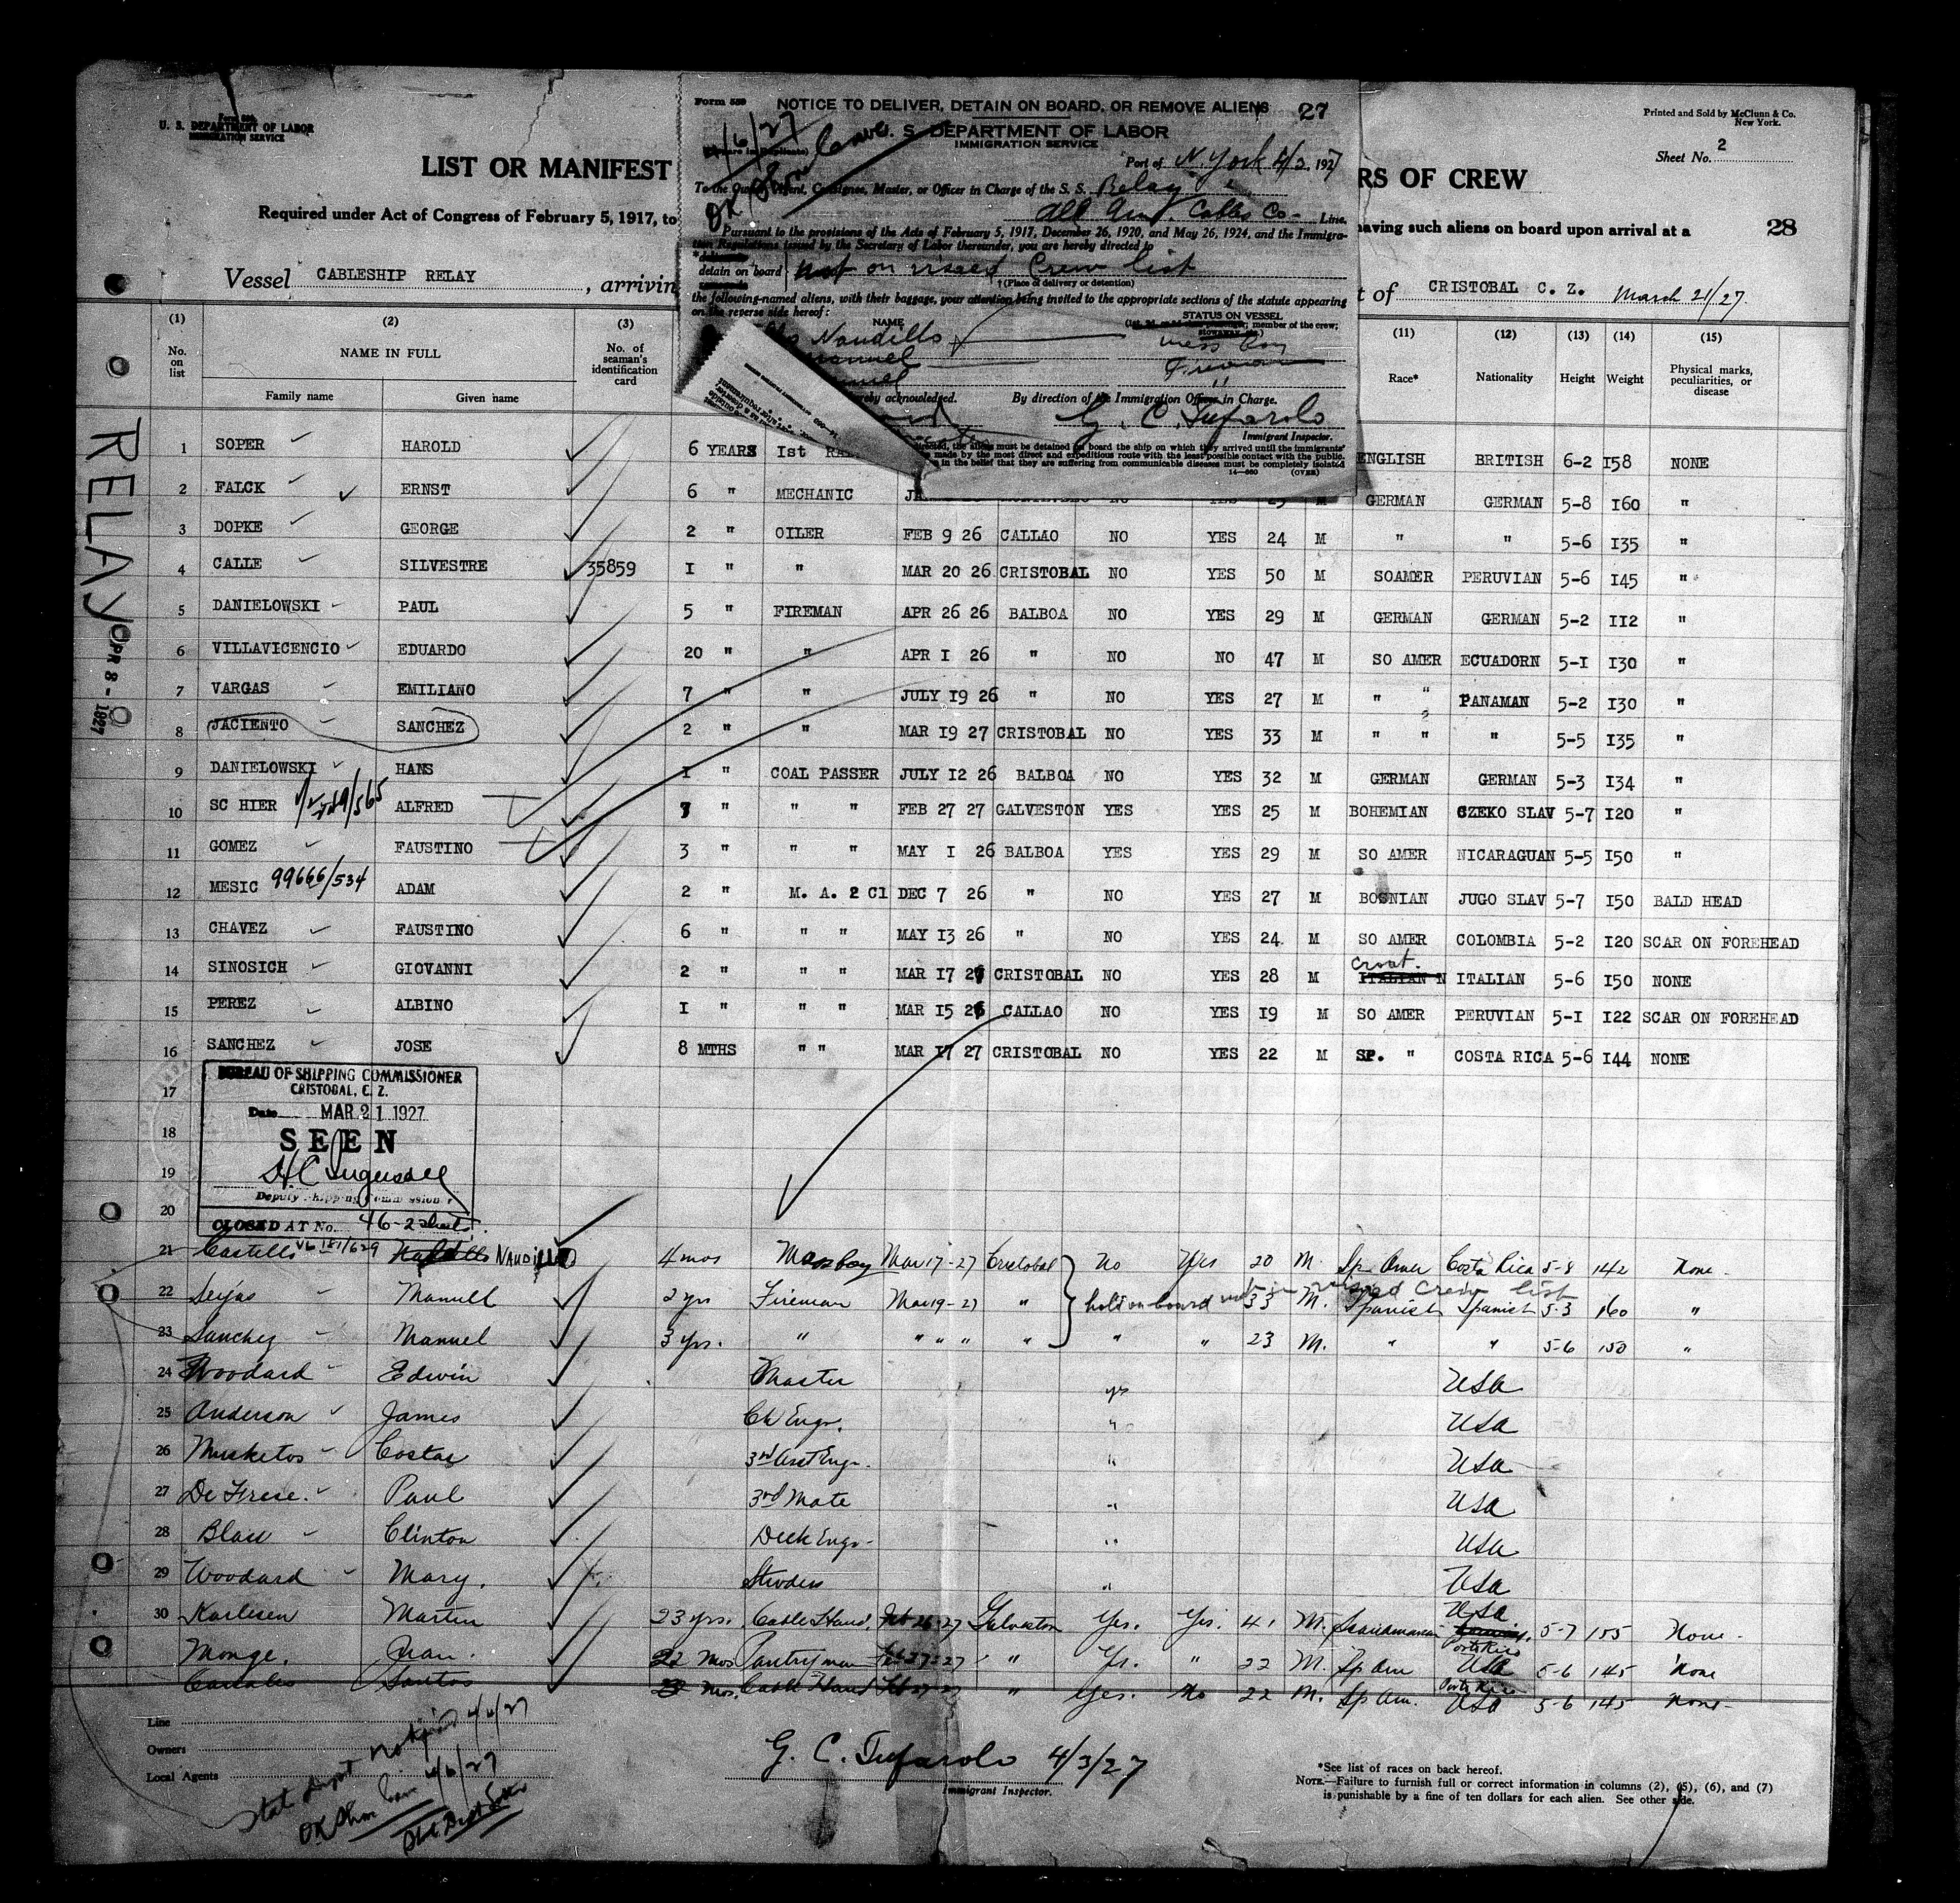 Form 689
U. S. DEPARTMENT OF LABOR
IMMIGRATION SERVICE
LIST OR MANIFEST
RS OF CREW
Required under Act of Congress of February 5, 1917, to
having such aliens on board upon arrival at a
Vessel CABLESHIP RELAY, arrivin
t of CRISTOBAL C. Z. March 21/27
Printed and Sold by McClunn & Co.
New York.
Sheet No. 2
28
Form 689
NOTICE TO DELIVER, DETAIN ON BOARD, OR REMOVE ALIENS 27
U. S. DEPARTMENT OF LABOR
IMMIGRATION SERVICE
4/6/27
OK Shore Leave
Port of N. York 4/3 1927
To the Owner, Agent, Consignee, Master, or Officer in Charge of the S. S. Relay
All Am. Cables Co- Line.
Pursuant to the provisions of the Acts of February 5, 1917, December 26, 1920, and May 26, 1924, and the Immigra-
tion Regulations issued by the Secretary of Labor thereunder, you are hereby directed to
detain on board not on visaed Crew list
†(Place of delivery or detention)
the following-named aliens, with their baggage, your attention being invited to the appropriate sections of the statute appearing
on the reverse side hereof:
NAME
STATUS ON VESSEL
member of the crew;
Naudillo mess boy
Manuel Fireman
"
reby acknowledged.
By direction of the Immigration Officer in Charge.
G. C. Tufarolo
Immigrant Inspector.
directed, the aliens must be detained on board the ship on which they arrived until the immigrants'
made by the most direct and expeditious route with the least possible contact with the public.
in the belief that they are suffering from communicable diseases must be completely isolated
(OVER)
(1) (2) (3) (11) (12) (13) (14) (15)
No. on list NAME IN FULL No. of seaman's identification card Race* Nationality Height Weight Physical marks, peculiarities, or disease
Family name Given name
RELAY
APR 8 - 1927
1 SOPER HAROLD 6 YEARS 1st ENGLISH BRITISH 6-2 158 NONE
2 FALCK ERNST 6 " MECHANIC GERMAN GERMAN 5-8 160 "
3 DOPKE GEORGE 2 " OILER FEB 9 26 CALLAO NO YES 24 M " " 5-6 135 "
4 CALLE SILVESTRE 35859 I " " MAR 20 26 CRISTOBAL NO YES 50 M SOAMER PERUVIAN 5-6 145 "
5 DANIELOWSKI PAUL 5 " FIREMAN APR 26 26 BALBOA NO YES 29 M GERMAN GERMAN 5-2 112 "
6 VILLAVICENCIO EDUARDO 20 " " APR I 26 " NO NO 47 M SO AMER ECUADORN 5-I 130 "
7 VARGAS EMILIANO 7 " " JULY 19 26 " NO YES 27 M " " PANAMAN 5-2 130 "
8 JACIENTO SANCHEZ 2 " " MAR 19 27 CRISTOBAL NO YES 33 M " " " 5-5 135 "
9 DANIELOWSKI HANS I " COAL PASSER JULY 12 26 BALBOA NO YES 32 M GERMAN GERMAN 5-3 134 "
10 SC HIER ALFRED 7 " " " FEB 27 27 GALVESTON YES YES 25 M BOHEMIAN CZEKO SLAV 5-7 120 "
11 GOMEZ FAUSTINO 3 " " " MAY I 26 BALBOA YES YES 29 M SO AMER NICARAGUAN 5-5 150 "
12 MESIC 99666/534 ADAM 2 " M. A. 2 Cl DEC 7 26 " NO YES 27 M BOSNIAN JUGO SLAV 5-7 150 BALD HEAD
13 CHAVEZ FAUSTINO 6 " " " MAY 13 26 " NO YES 24 M SO AMER COLOMBIA 5-2 120 SCAR ON FOREHEAD
14 SINOSICH GIOVANNI 2 " " " MAR 17 27 CRISTOBAL NO YES 28 M Croat. ITALIAN N ITALIAN 5-6 150 NONE
15 PEREZ ALBINO I " " " MAR 15 26 CALLAO NO YES 19 M SO AMER PERUVIAN 5-I 122 SCAR ON FOREHEAD
16 SANCHEZ JOSE 8 MTHS " " MAR 17 27 CRISTOBAL NO YES 22 M SP. " COSTA RICA 5-6 144 NONE
17
18
19
20
BUREAU OF SHIPPING COMMISSIONER
CRISTOBAL, C. Z.
Date MAR 21 1927
SEEN
H C Ingersoll
Deputy Shipping Commissioner
CLOSED AT No. 46-2 sheets.
21 Castello NAUDILLO 4 mos Messboy Mar 17-27 Cristobal No Yes 20 M. Sp Amer Costa Rica 5-8 142 None -
hold on board not on visaed Crew list
22 Seijas Manuel 2 yrs Fireman Mar 19-27 " 33 M. Spanish Spanish 5-3 160 "
23 Sanchez Manuel 3 yrs. " " " " " " " 23 M. " " 5-6 150 "
24 Woodard Edwin Master yes USA
25 Anderson James Ch Engr. " USA
26 Musketos Costas 3rd Asst Engr. " USA
27 De Frese. Paul 3rd Mate " USA
28 Blau Clinton Deck Engr - " USA
29 Woodard Mary. Stwdess " USA
30 Karlesen Martin 23 yrs. Cable Hand. Feb 26-27 Galveston Yes. Yes. 41 M. Scandinavian USA 5-7 155 None -
Monge. Juan. 22 mos Pantryman Feb 27-27 " Yes. " 22 M. Sp Am Porto Rico USA 5-6 145 None
Santos mos. Cable Hand Feb 27-27 " Yes. No 22 M. Sp Am. Porto Rico USA 5-6 145 None -
Line
Owners
Local Agents
4/6/27
G. C. Tufarolo 4/3/27
Immigrant Inspector.
*See list of races on back hereof.
NOTE.—Failure to furnish full or correct information in columns (2), (5), (6), and (7)
is punishable by a fine of ten dollars for each alien. See other side.